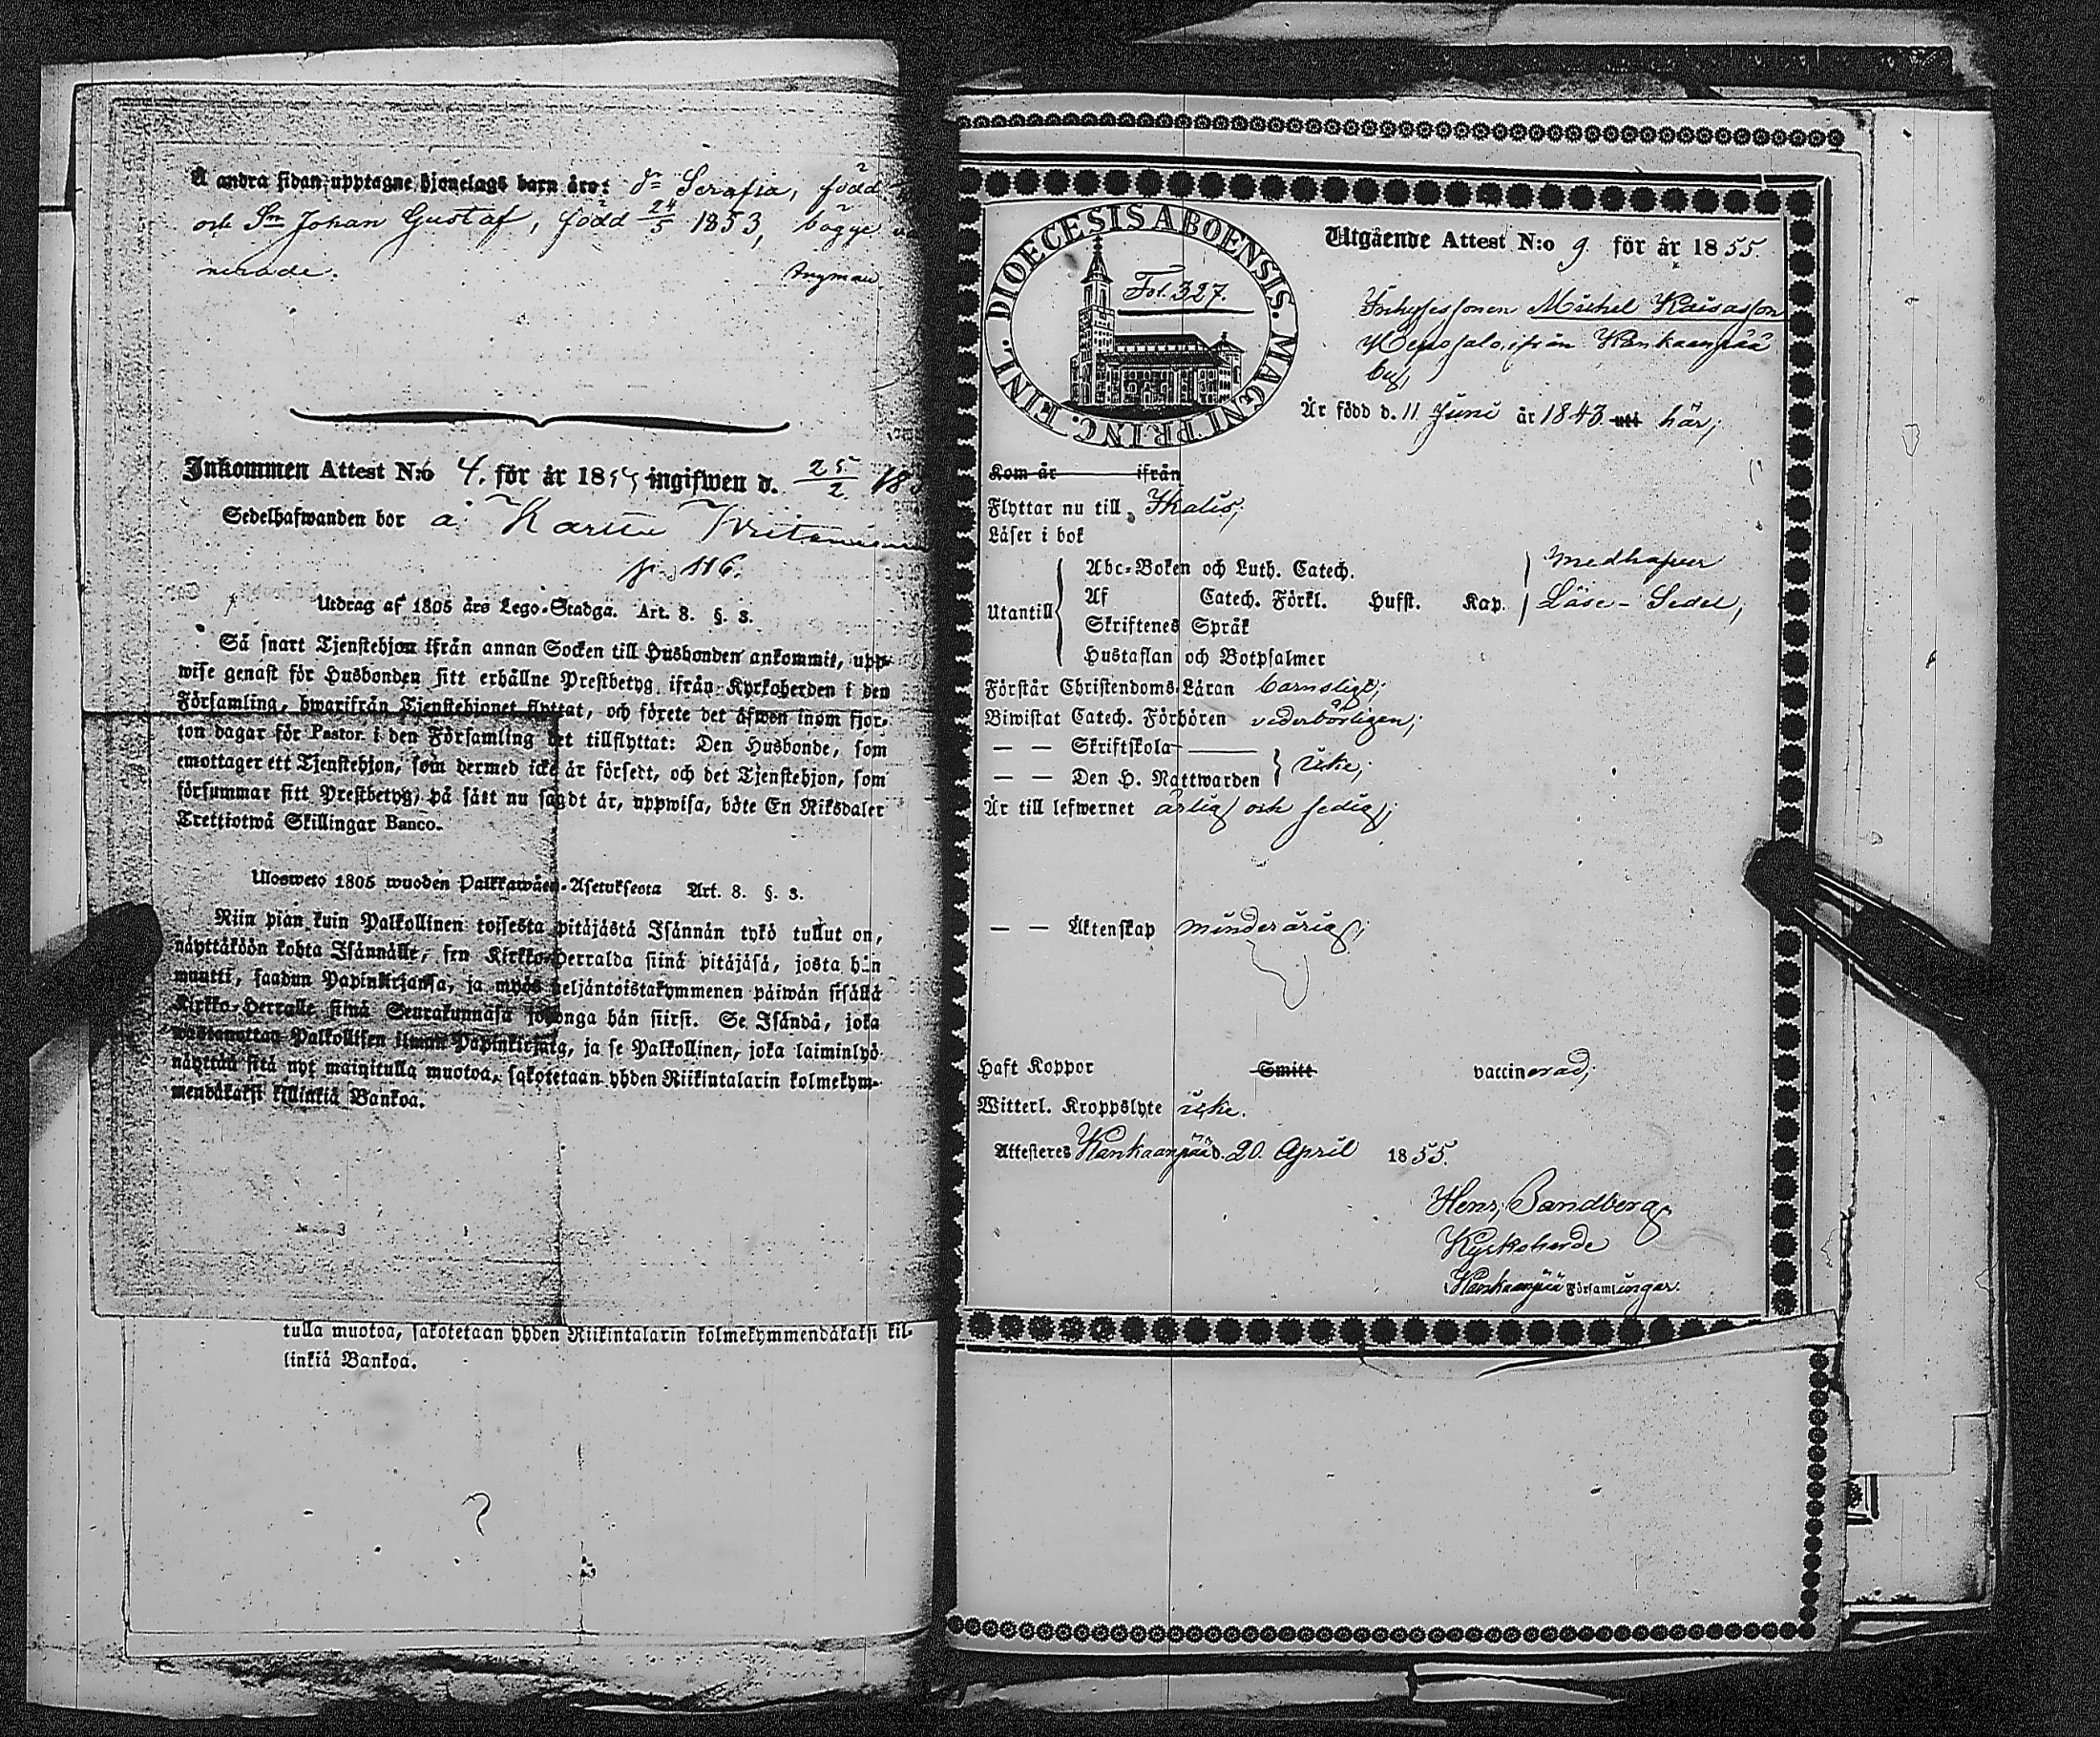 Å andra sidan upptagne hjonelags barn äro: dr Serafia, född
och Sn Johan Gustaf, född 24/5 1853, bägge
nerade.
Inkommen Attest N:o 4. för år 1855 ingifwen d. 25/2 18
Sedelhafwanden bor å Karttu
p. 116.
Utdrag af 1805 års Lego-Stadga. Art. 8. §. 3.
Så snart Tjenstehjon ifrån annan Socken till Husbonden ankommit, upp-
wise genast för Husbonden sitt erhållne Prestbetyg ifrån Kyrkoherden i den
Församling, hwarifrån Tjenstehjonet flyttat, och förete det äfwen inom fjor-
ton dagar för Pastor i den Församling det tillflyttat: Den Husbonde, som
emottager ett Tjenstehjon, som dermed icke är försedt, och det Tjenstehjon, som
försummar sitt Prestbetyg, på sätt nu sagdt är, uppwisa, böte En Riksdaler
Trettiotwå Skillingar Banco.
Ulosweto 1805 wuoden Palkkawäen-Asetuksesta Art. 8. §. 3.
Niin pian kuin Palkollinen toisesta pitäjästä Isännän tykö tullut on,
näyttäköön kohta Isännälle, sen Kirkko-Herralda siinä pitäjäsä, josta hän
muutti, saadun Papinkirjansa, ja myös neljäntoistakymmenen päiwän sisällä
Kirkko-Herralle siinä Seurakunnasa johonga hän siirsi. Se Isändä, joka
wastanottaa Palkollisen ilman Papinkirjata, ja se Palkollinen, joka laiminlyö
näyttää sitä nyt mainitulla muotoa, sakotetaan yhden Riikintalarin kolmekym-
mendäkaksi killinkiä Bankoa.
tulla muotoa, sakotetaan yhden Riikintalarin kolmekymmendäkaksi kil-
linkiä Bankoa.
DIOECESIS ABOENSIS. MAGNI PRINC. FINL.
Fol. 327.
Utgående Attest N:o 9 för år 1855.
Inhysessonen Michel Kaisasson
ifrån Kankaanpää
by,
Är född d. 11 Juni år 1843 uti här;
Kom år ifrån
Flyttar nu till Ikalis;
Läser i bok
Utantill
Abc-Boken och Luth. Catech.
Af Catech. Förkl. Hufst. Kap.
Skriftenes Språk
Hustaflan och Botpsalmer
medhafver
Läse-Sedel;
Förstår Christendoms Läran barnsligt;
Biwistat Catech. Förhören vederbörligen;
— — Skriftskola
— — Den H. Nattwarden icke;
Är till lefwernet ärlig och sedig;
— — Äktenskap minderårig;
Haft Koppor Smitt vaccinerad;
Witterl. Kroppslyte icke.
Attesteres Kankaanpää d. 20 April 1855.
Henr. Sandberg
Kyrkoherde
Kankaanpää Församlingar.